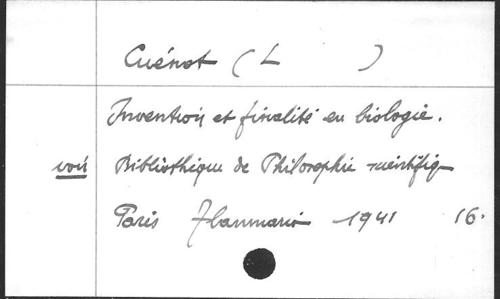 Cuénot (L )
Invention et finalité en biologie.
voir Bibliothèque de Philosophie scientifiq
Paris Flammario 1941 16.